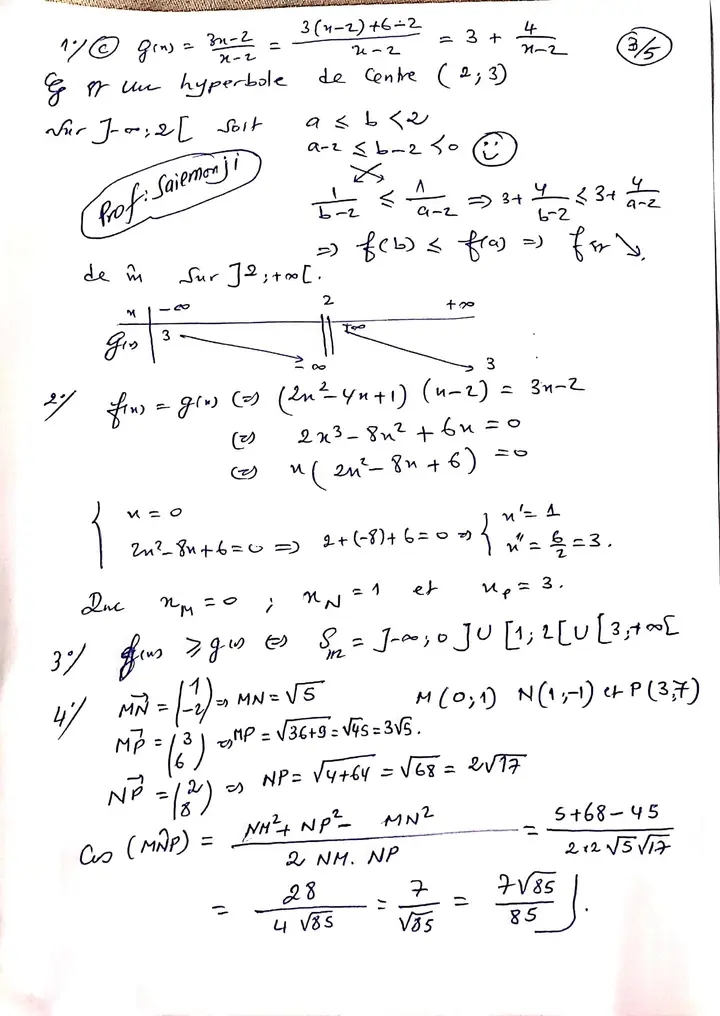 1°/ ⓒ g(x) = 3x-2 / x-2 = 3(x-2)+6-2 / x-2 = 3 + 4 / x-2
3/5
Cg est une hyperbole de centre (2;3)
Sur ]-∞;2[ soit a ≤ b < 2
a-2 ≤ b-2 < 0
Prof: Saiemonji
1/b-2 ≤ 1/a-2 ⇒ 3+ 4/b-2 ≤ 3+ 4/a-2
⇒ f(b) ≤ f(a) ⇒ f est ↘.
de m̂ sur ]2;+∞[.
x | -∞ 2 +∞
g(x) | 3 -∞ || +∞ 3
2°/ f(x) = g(x) ⇔ (2x²-4x+1)(x-2) = 3x-2
⇔ 2x³-8x²+6x = 0
⇔ x(2x²-8x+6) = 0
{ x = 0
2x²-8x+6=0 ⇒ 2+(-8)+6=0 ⇒ { x'= 1
x''= 6/2 = 3.
Donc x_M = 0 ; x_N = 1 et x_P = 3.
3°/ f(x) ≥ g(x) ⇔ S_IR = ]-∞;0]∪[1;2[∪[3,+∞[
4°/ MN→ = (1 -2) ⇒ MN = √5 M(0;1) N(1,-1) et P(3,7)
MP→ = (3 6) ⇒ MP = √36+9 = √45 = 3√5.
NP→ = (2 8) ⇒ NP = √4+64 = √68 = 2√17
Cos (MN̂P) = NM²+NP²- MN² / 2 NM. NP = 5+68-45 / 2×2 √5 √17
= 28 / 4√85 = 7 / √85 = 7√85 / 85